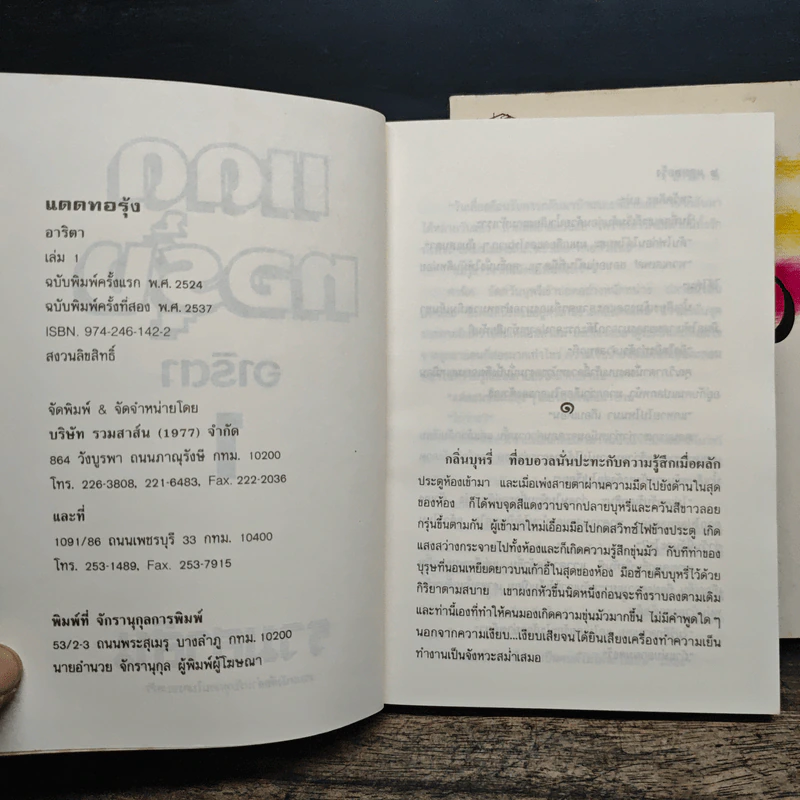 แดดทอรุ้ง
อาริตา
เล่ม 1
ฉบับพิมพ์ครั้งแรก พ.ศ. 2524
ฉบับพิมพ์ครั้งที่สอง พ.ศ. 2537
ISBN. 974-246-142-2
สงวนลิขสิทธิ์
จัดพิมพ์ & จัดจำหน่ายโดย
บริษัท รวมสาส์น (1977) จำกัด
864 วังบูรพา ถนนภาณุรังษี กทม. 10200
โทร. 226-3808, 221-6483, Fax. 222-2036
และที่
1091/86 ถนนเพชรบุรี 33 กทม. 10400
โทร. 253-1489, Fax. 253-7915
พิมพ์ที่ จักรานุกุลการพิมพ์
53/2-3 ถนนพระสุเมรุ บางลำภู กทม. 10200
นายอำนวย จักรานุกุล ผู้พิมพ์ผู้โฆษณา
๑
กลิ่นบุหรี่ ที่อบอวลนั่นปะทะกับความรู้สึกเมื่อผลัก
ประตูห้องเข้ามา และเมื่อเพ่งสายตาผ่านความมืดไปยังด้านในสุด
ของห้อง ก็ได้พบจุดสีแดงวาบจากปลายบุหรี่และควันสีขาวลอย
กรุ่นขึ้นตามกัน ผู้เข้ามาใหม่เอื้อมมือไปกดสวิทซ์ไฟข้างประตู เกิด
แสงสว่างกระจายไปทั้งห้องและก็เกิดความรู้สึกขุ่นมัว กับทีท่าของ
บุรุษที่นอนเหยียดยาวบนเก้าอี้ในสุดของห้อง มือซ้ายคีบบุหรี่ไว้ด้วย
กิริยาตามสบาย เขาผงกหัวขึ้นนิดหนึ่งก่อนจะทิ้งราบลงตามเดิม
และท่านี้เองที่ทำให้คนมองเกิดความขุ่นมัวมากขึ้น ไม่มีคำพูดใด ๆ
นอกจากความเงียบ...เงียบเสียจนได้ยินเสียงเครื่องทำความเย็น
ทำงานเป็นจังหวะสม่ำเสมอ